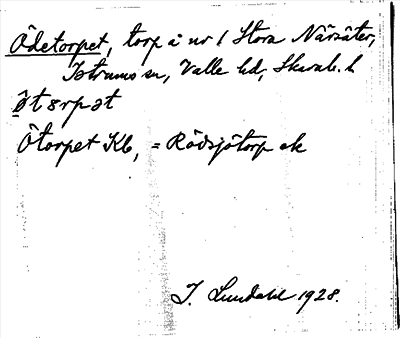 Ödetorpet, torp å nr 1 Stora Närsäter,
Istrums sn, Valle hd, Skarab. l
øtɛrpət
Ötorpet Kb, = Rödsjötorp ek
I. Lundahl 1928.